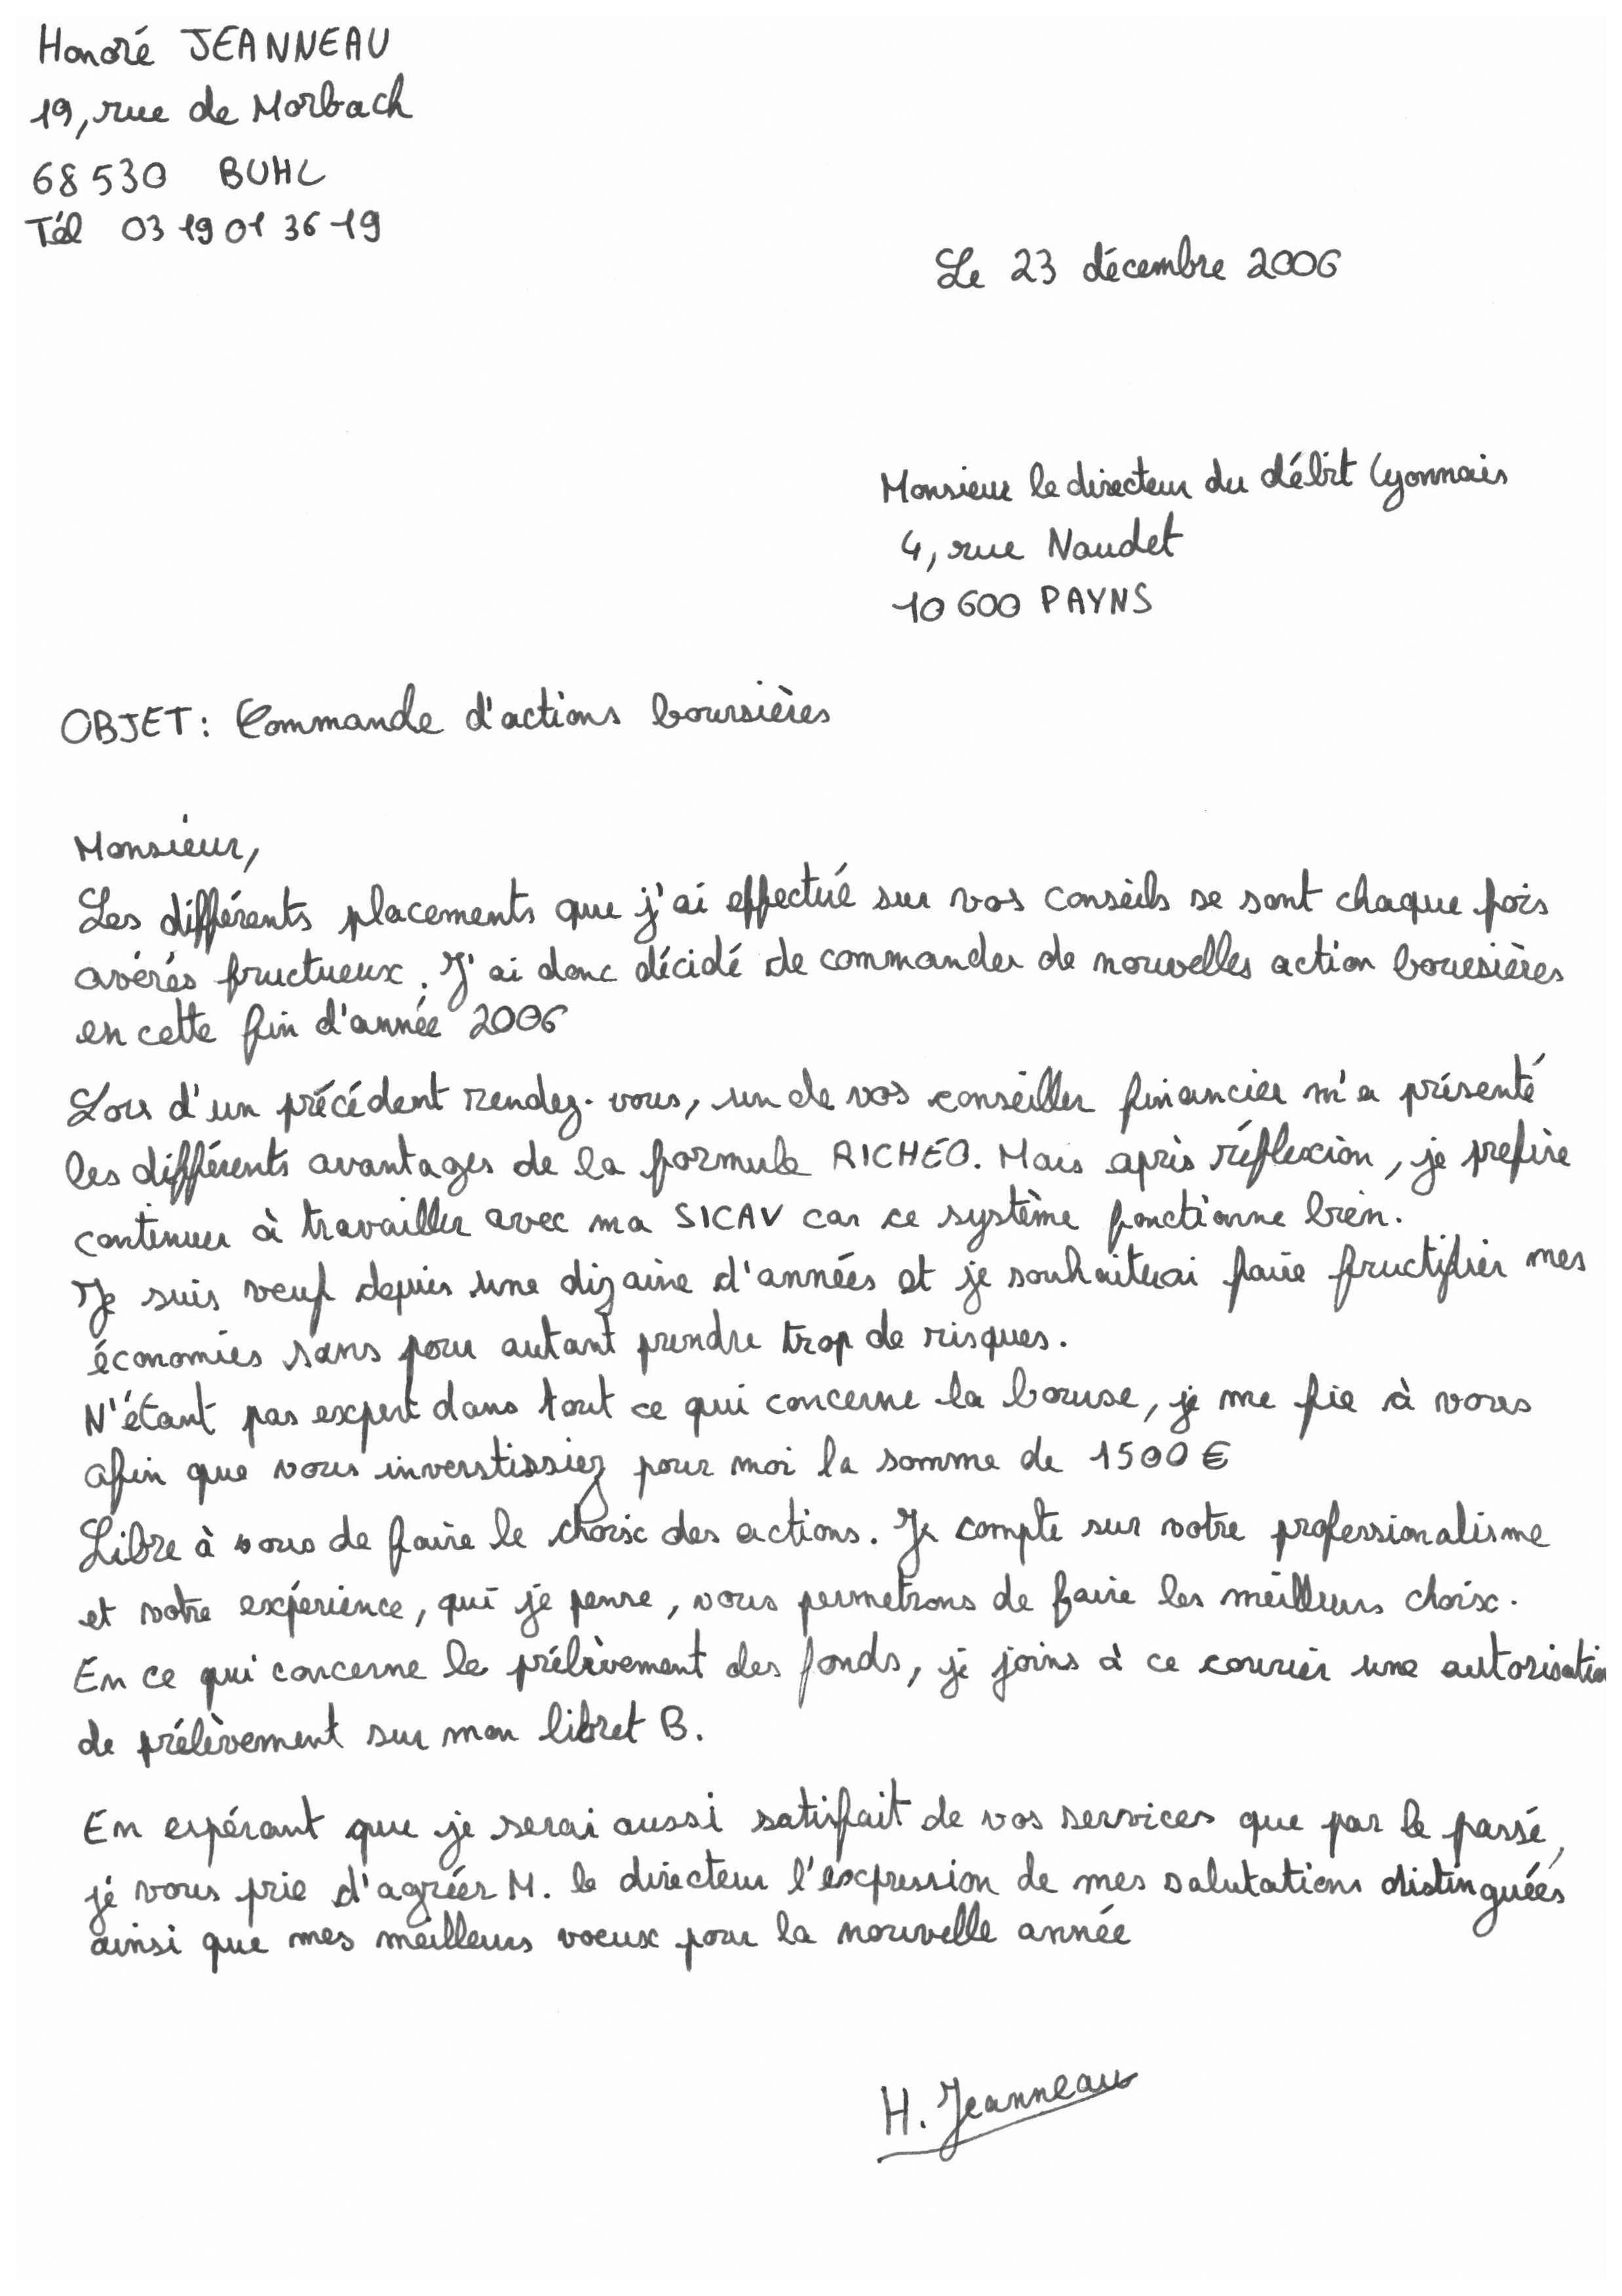 Honoré JEANNEAU
19, rue de Morbach
68530 BUHL
Tél 03 19 01 36 19
Le 23 décembre 2006
Monsieur le directeur du débit Lyonnais
4, rue Naudet
10 600 PAYNS
OBJET : Commande d'actions boursières
Monsieur,
Les différents placements que j'ai effectué sur vos conseils se sont chaque fois
avérés fructueux. J'ai donc décidé de commander de nouvelles action boursières
en cette fin d'année 2006
Lors d'un précédent rendez-vous, un de vos conseiller financier m'a présenté
les différents avantages de la formule RICHÉO. Mais après réflexion, je prefère
continuer à travailler avec ma SICAV car ce système fonctionne bien.
Je suis veuf depuis une dizaine d'années et je souhaiterai faire fructifier mes
économies sans pour autant prendre trop de risques.
N'étant pas expert dans tout ce qui concerne la bourse, je me fie à vous
afin que vous inverstissiez pour moi la somme de 1500 €
Libre à vous de faire le choix des actions. Je compte sur votre professionalisme
et votre expérience, qui je pense, vous permetrons de faire les meilleurs choix.
En ce qui concerne le prélèvement des fonds, je joins à ce courier une autorisation
de prélèvement sur mon libret B.
En espérant que je serai aussi satisfait de vos services que par le passé,
je vous prie d'agréer M. le directeur l'expression de mes salutations distinguées
ainsi que mes meilleurs voeux pour la nouvelle année
H. Jeanneau